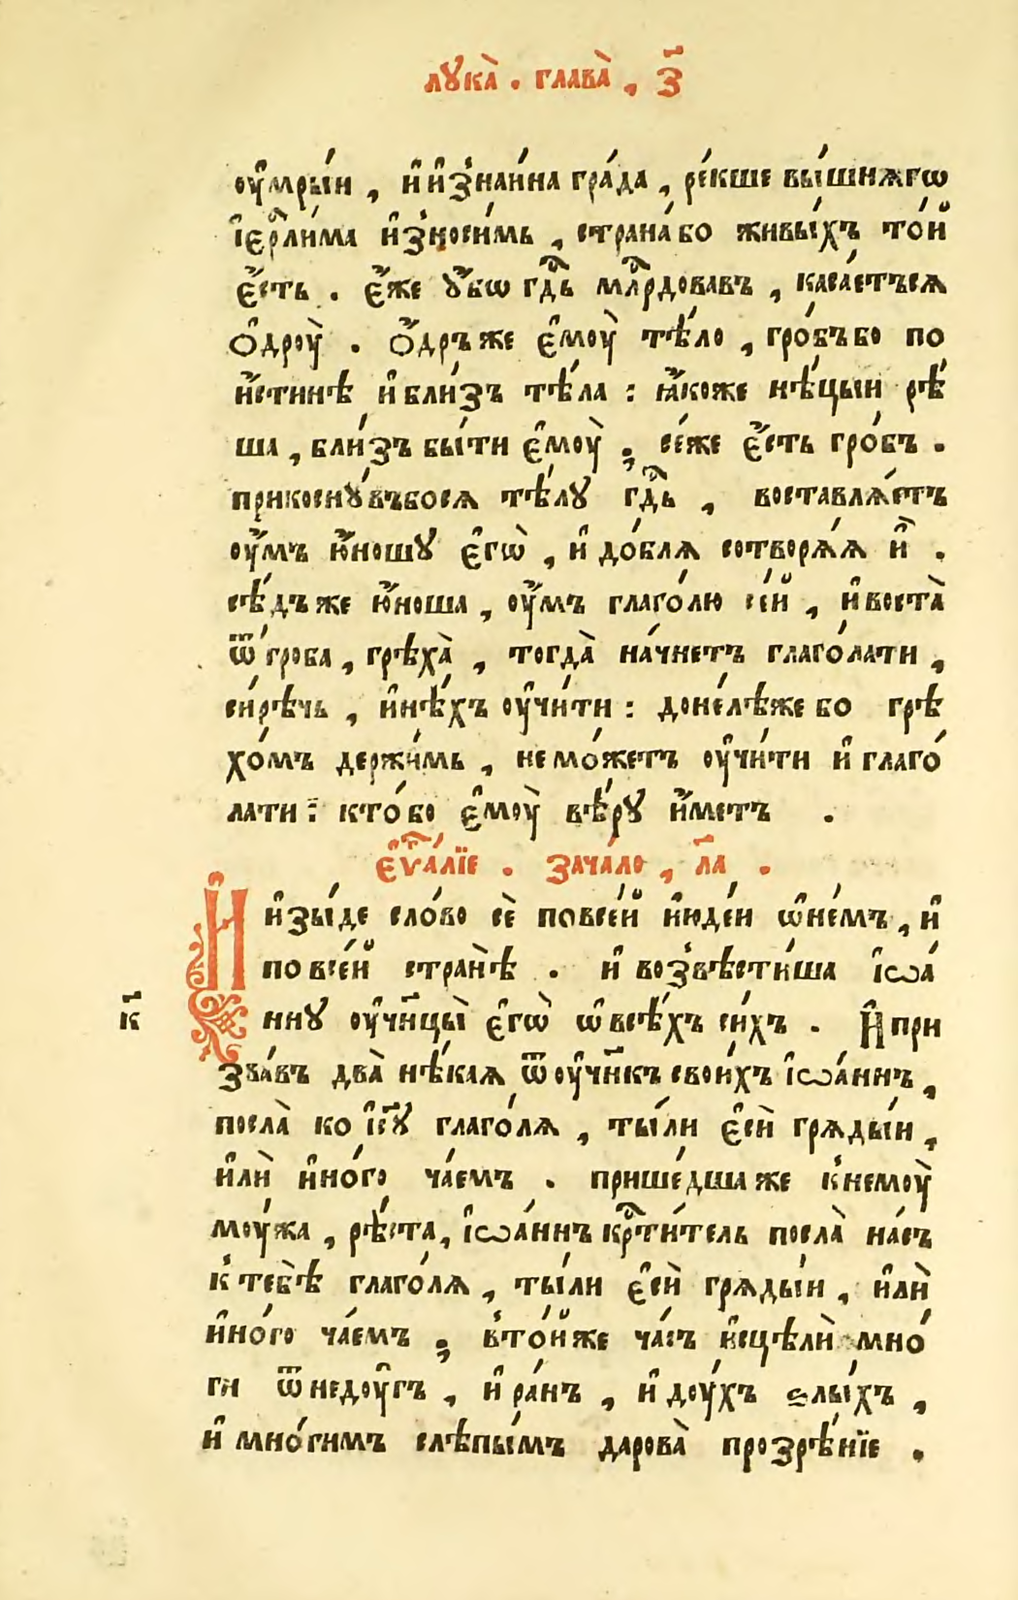 лꙋка̀ . глава̀ , з҃
оу҆мры́и , и҆ и҆з̾наи́на гра́да , ре́кше вы́шнѧгѡ
і҆ерⷭ҇ли́ма и҆з̾носи́мь , страна́ бо живы́хъ то́й
є҆́сть . є҆́же ᲂу҆́бѡ гдⷭ҇ь млⷭ҇рдовавъ , каса́етъсѧ
ѻ҆дроу̀ . ѻ҆́дръ же є҆моу̀ тѣ́ло , гро́бъ бо по
и҆́стинѣ и҆ бли́зъ тѣ́ла : ꙗ҆́коже нѣ́цыи рѣ́
ша , бли́зъ бы́ти є҆моу̀ ; се́же є҆́сть гро́бъ .
прикоснꙋ́въбосѧ тѣ́лꙋ гдⷭ҇ь , воставлѧ́етъ
оу҆́мъ ю҆́ношꙋ є҆гѡ̀ , и҆ до́блѧ сотворѧ́ѧ и҆̀ .
сѣ́дъ же ю҆́ноша , оу҆́мъ глаго́лю се́й , и҆ воста̀
ѿ гро́ба , грѣха̀ , тогда̀ на́чнетъ глаго́лати ,
си́рѣчь , и҆нѣ́хъ оу҆чи́ти : доне́лѣже бо грѣ
хо́мъ держи́мь , не мо́жетъ оу҆чи́ти и҆ глаго́
лати : кто́ бо є҆моу̀ вѣ́рꙋ и҆́метъ .
є҆ѵⷢ҇а́лїе . зача́ло , л҃а .
И҆ и҆зы́де сло́во сѐ по все́й и҆юде́и ѡ҆ не́мъ , и҆
по все́й странѣ̀ . и҆ воз̾вѣсти́ша і҆ѡа́
ннꙋ оу҆чн҃цы̀ є҆гѡ̀ ѡ҆ всѣ́хъ си́хъ . И҆ при
к҃
зва́въ два̀ нѣ́каѧ ѿ оу҆чн҃къ свои́хъ і҆ѡа́ннъ ,
посла̀ ко і҆с҃ꙋ глаго́лѧ , ты́ ли є҆сѝ грѧды́и ,
и҆лѝ и҆но́го ча́емъ . прише́дша же к̾немоу̀
моу́жа , рѣ́ста , і҆ѡа́ннъ крⷭ҇ти́тель посла̀ на́съ
к̾ тебѣ̀ глаго́лѧ , ты́ ли є҆сѝ грѧды́и , и҆лѝ
и҆но́го ча́емъ ; в̾ то́й же ча́съ и҆сцѣлѝ мно́
ги ѿ недоу҆́гъ , и҆ ра́нъ , и҆ доу́хъ ѕлы́хъ ,
и҆ мно́гимъ слѣпы́мъ дарова̀ прозрѣ́нїе .